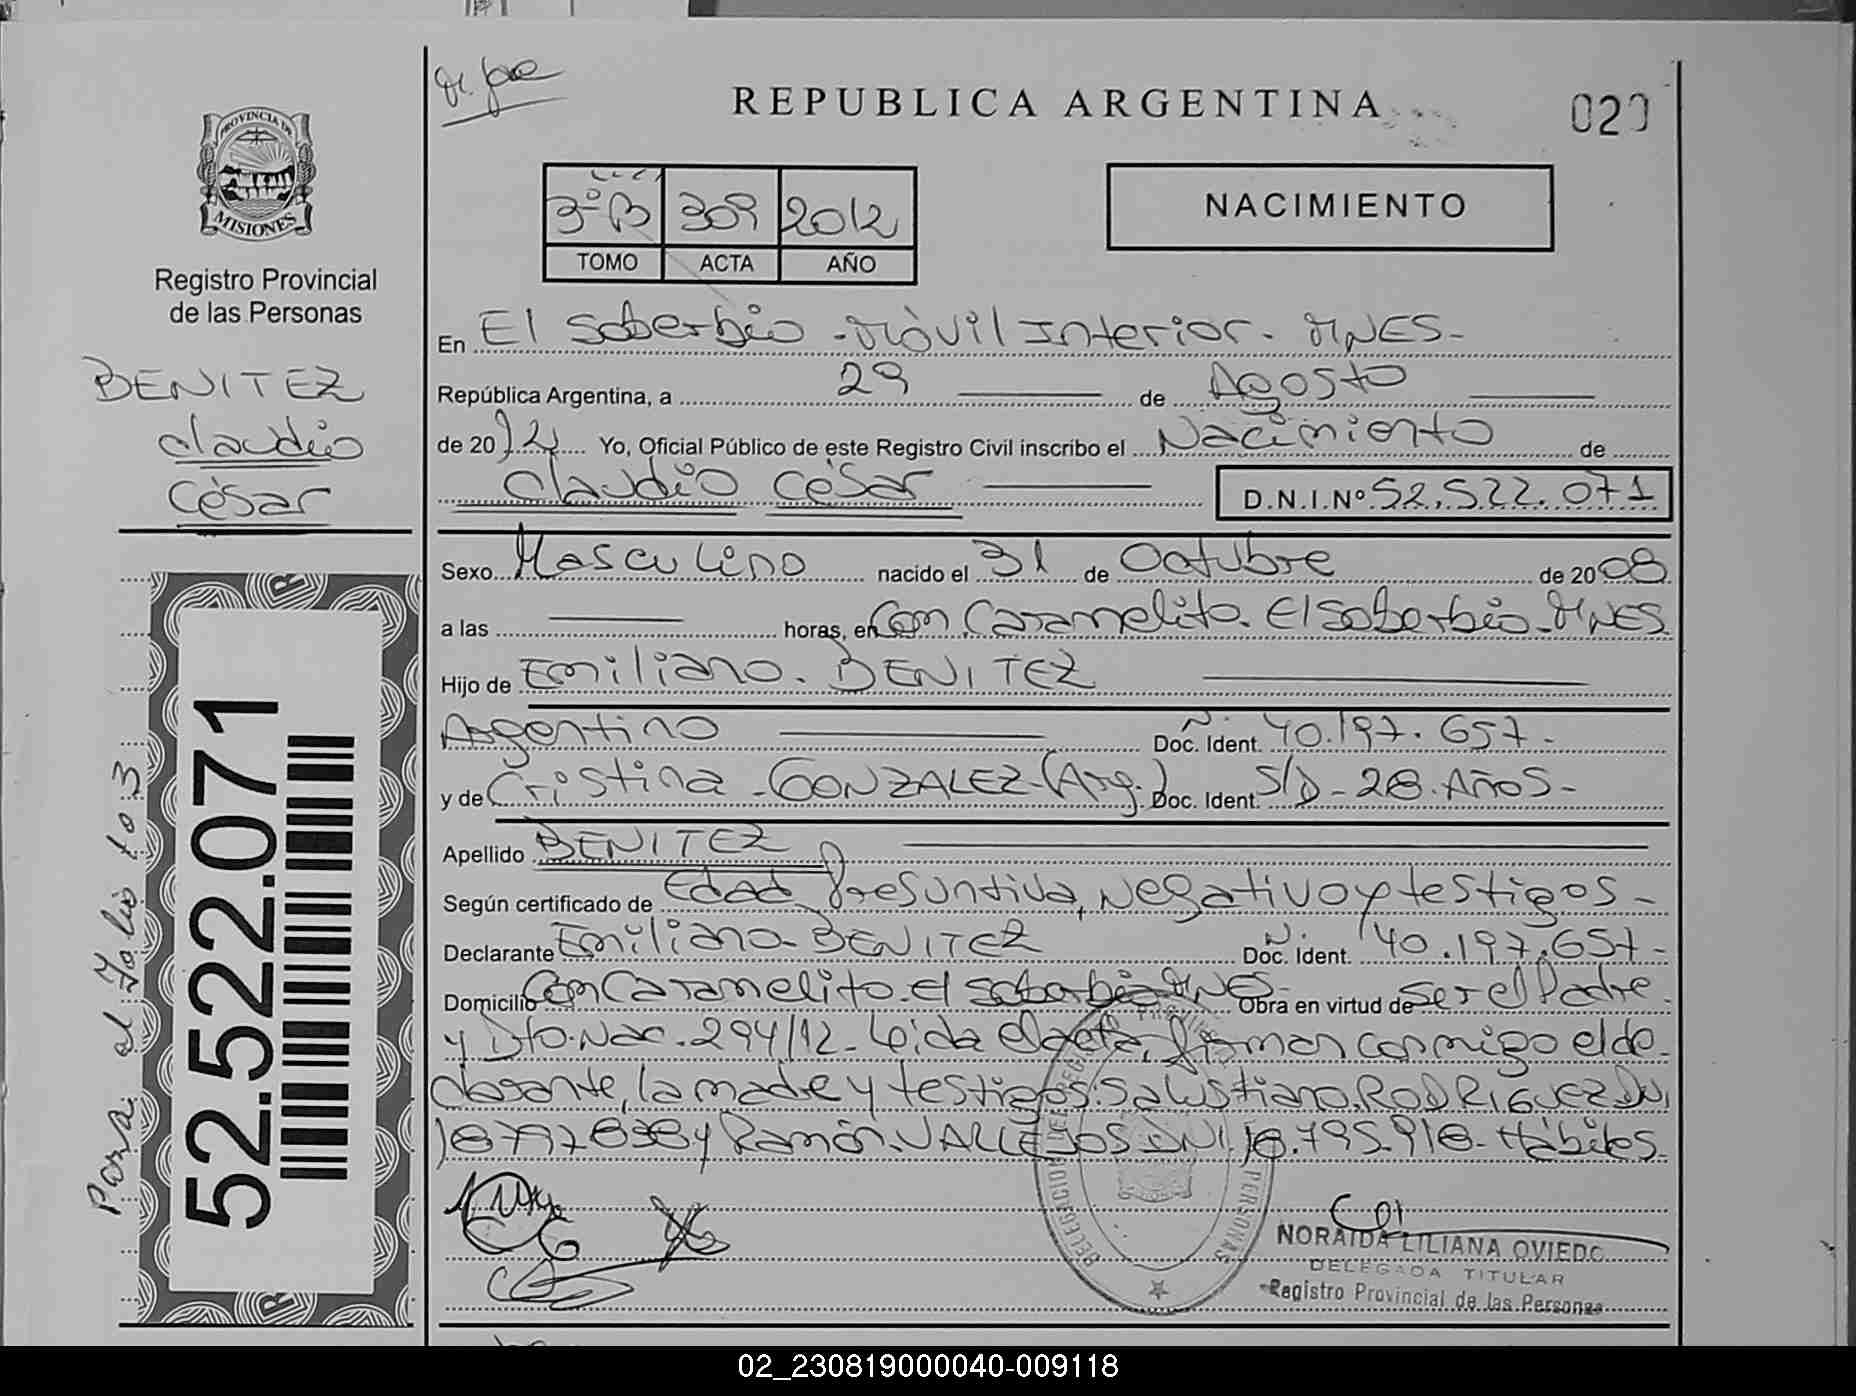 REPUBLICA ARGENTINA
020
PROVINCIA DE
MISIONES
Registro Provincial
de las Personas
BENITEZ
Claudio
César
3º B 309 2012
TOMO ACTA AÑO
NACIMIENTO
En El Soberbio - Móvil Interior - MNES -
República Argentina, a 29 de Agosto
de 2012 Yo, Oficial Público de este Registro Civil inscribo el Nacimiento de
Claudio César D.N.I.Nº 52.522.071
Sexo Masculino nacido el 31 de Octubre de 2008
a las horas, en Com Caramelito. El Soberbio - MNES.
Hijo de Emiliano. BENITEZ
Argentino Doc. Ident. N. 40.197.657.-
y de Cristina - GONZALEZ - (Arg.) Doc. Ident. S/D - 28. AÑOS -
Apellido BENITEZ
Según certificado de Edad Presuntiva, Negativo y testigos -
Declarante Emiliano - BENITEZ Doc. Ident. N. 40.197.657 -
Domicilio Com Caramelito. El Soberbio MNES - Obra en virtud de ser el Padre.
y Dto. Nac. 294/12 - Leida el acta, firman conmigo el de-
clarante, la madre y testigos: Salustiano. RODRIGUEZ DNI
18797838 y Ramón VALLEJOS DNI 18.795.918 - Hábiles.
52.522.071
Pasa al Folio to 3
DELEGACION
PERSONAS
NORAIDA LILIANA OVIEDO
DELEGADA TITULAR
Registro Provincial de las Personas
02_230819000040-009118